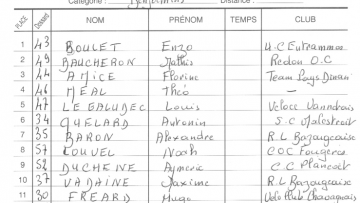 Catégorie : Benjamins Distance :
PLACE Dossard NOM PRÉNOM TEMPS CLUB
1 43 BOULET Enzo U.C Entrammes
2 49 BAUCHERON Mathis Redon O.C
3 44 AMICE Florine Team Pays Dinan
4 46 MEAL Théo —
5 47 LE GALUDEC Louis Veloce Vannetais
6 34 GUELARD Antonin S.C Malestroit
7 35 BARON Alexandre R.L Bazougeaise
8 57 LOUVEL Noah COC Fougeres
9 52 DUCHENE Aymeric C.C Plancoët
10 37 VADAINE Maxime R.L Bazougeaise
11 30 FREARD Hugo Velo Club Chavagnais